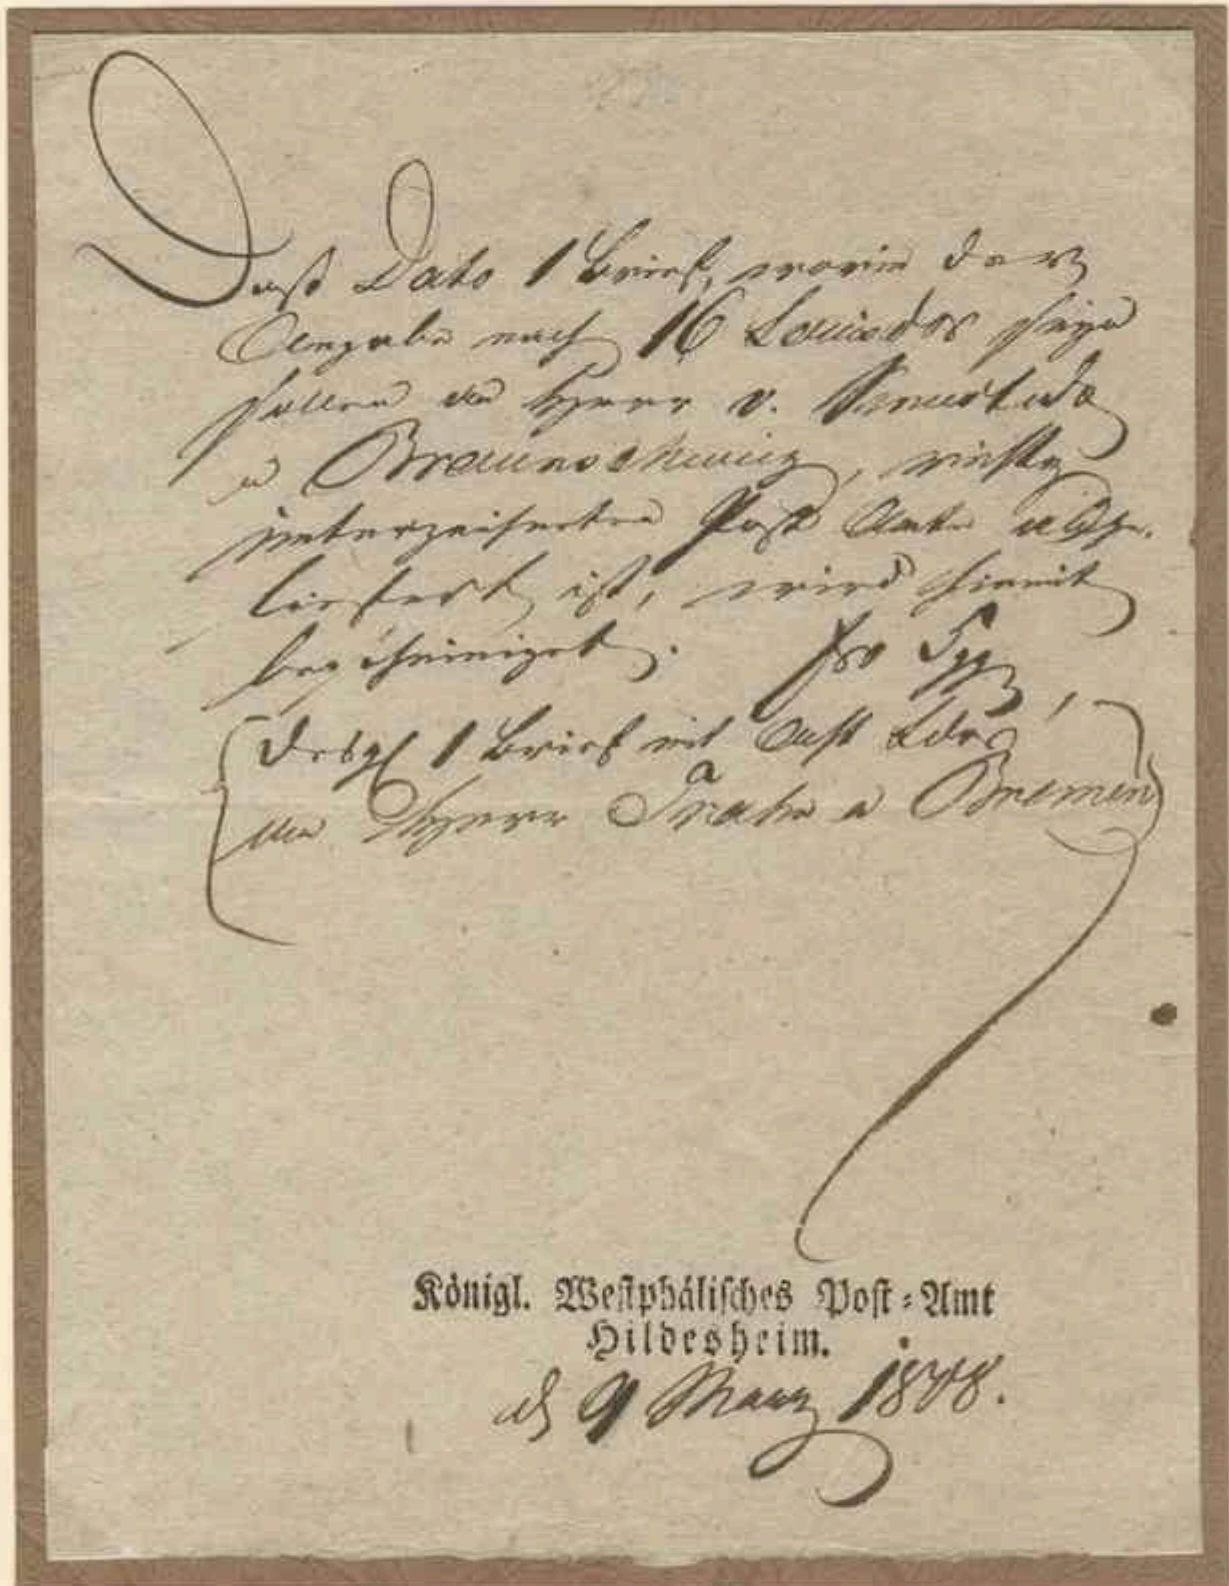 Daß Dato 1 Brief, worin der
Angabe nach 16 Louisdor seyn
sollen an Herrn v.
a Braunschweig, richtig
unterzeichneten Post Amte abge-
liefert ist, wird hiemit
bescheiniget.
Desgl 1 Brief mit Acht Ldor
an Herrn a Bremen
Königl. Westphälisches Post-Amt
Hildesheim.
d 9 Marz 1808.